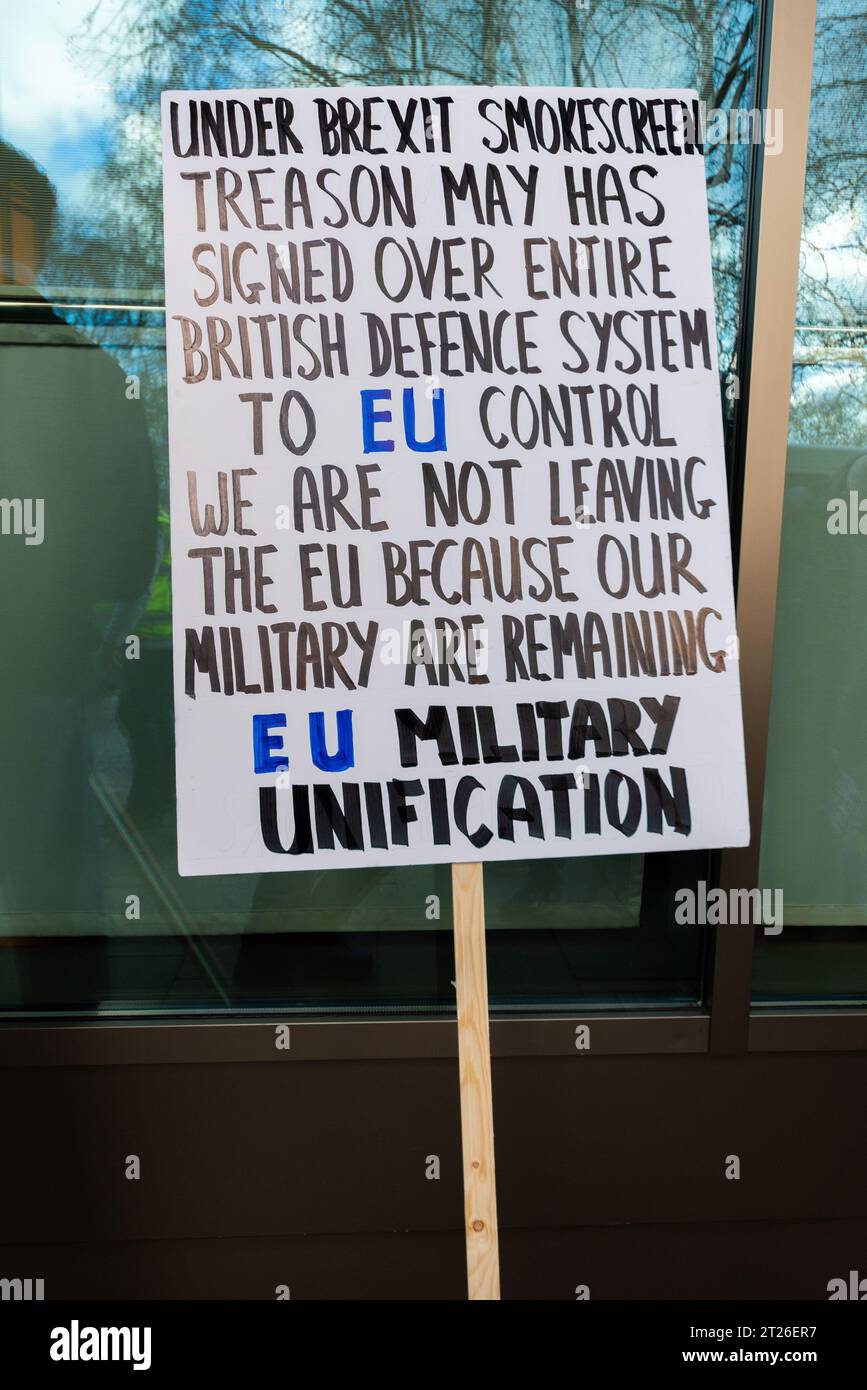 UNDER BREXIT SMOKESCREEN
TREASON MAY HAS
SIGNED OVER ENTIRE
BRITISH DEFENCE SYSTEM
TO EU CONTROL
WE ARE NOT LEAVING
THE EU BECAUSE OUR
MILITARY ARE REMAINING
EU MILITARY
UNIFICATION
alamy
Image ID: 2T26ER7
www.alamy.com